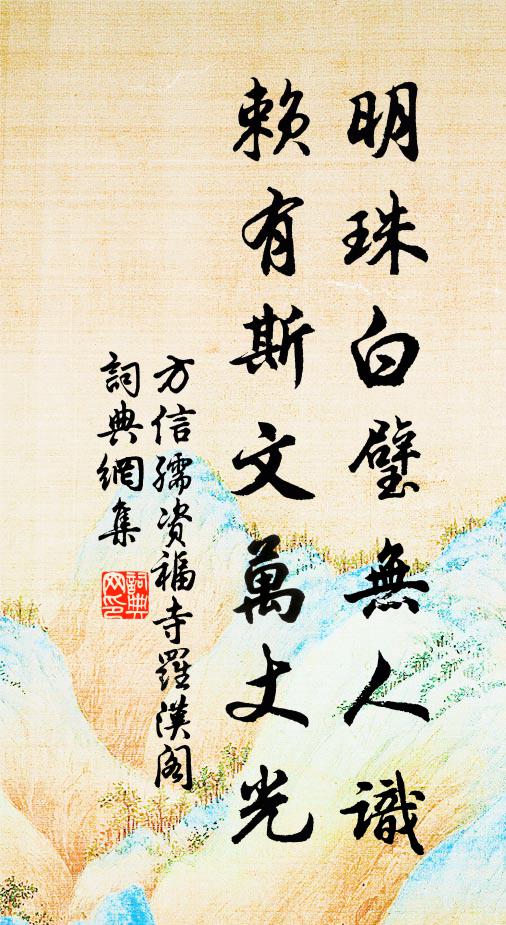 明珠白璧無人識
賴有斯文萬丈光
方信孺资福寺羅漢阁
詞典網集
詞典
网印